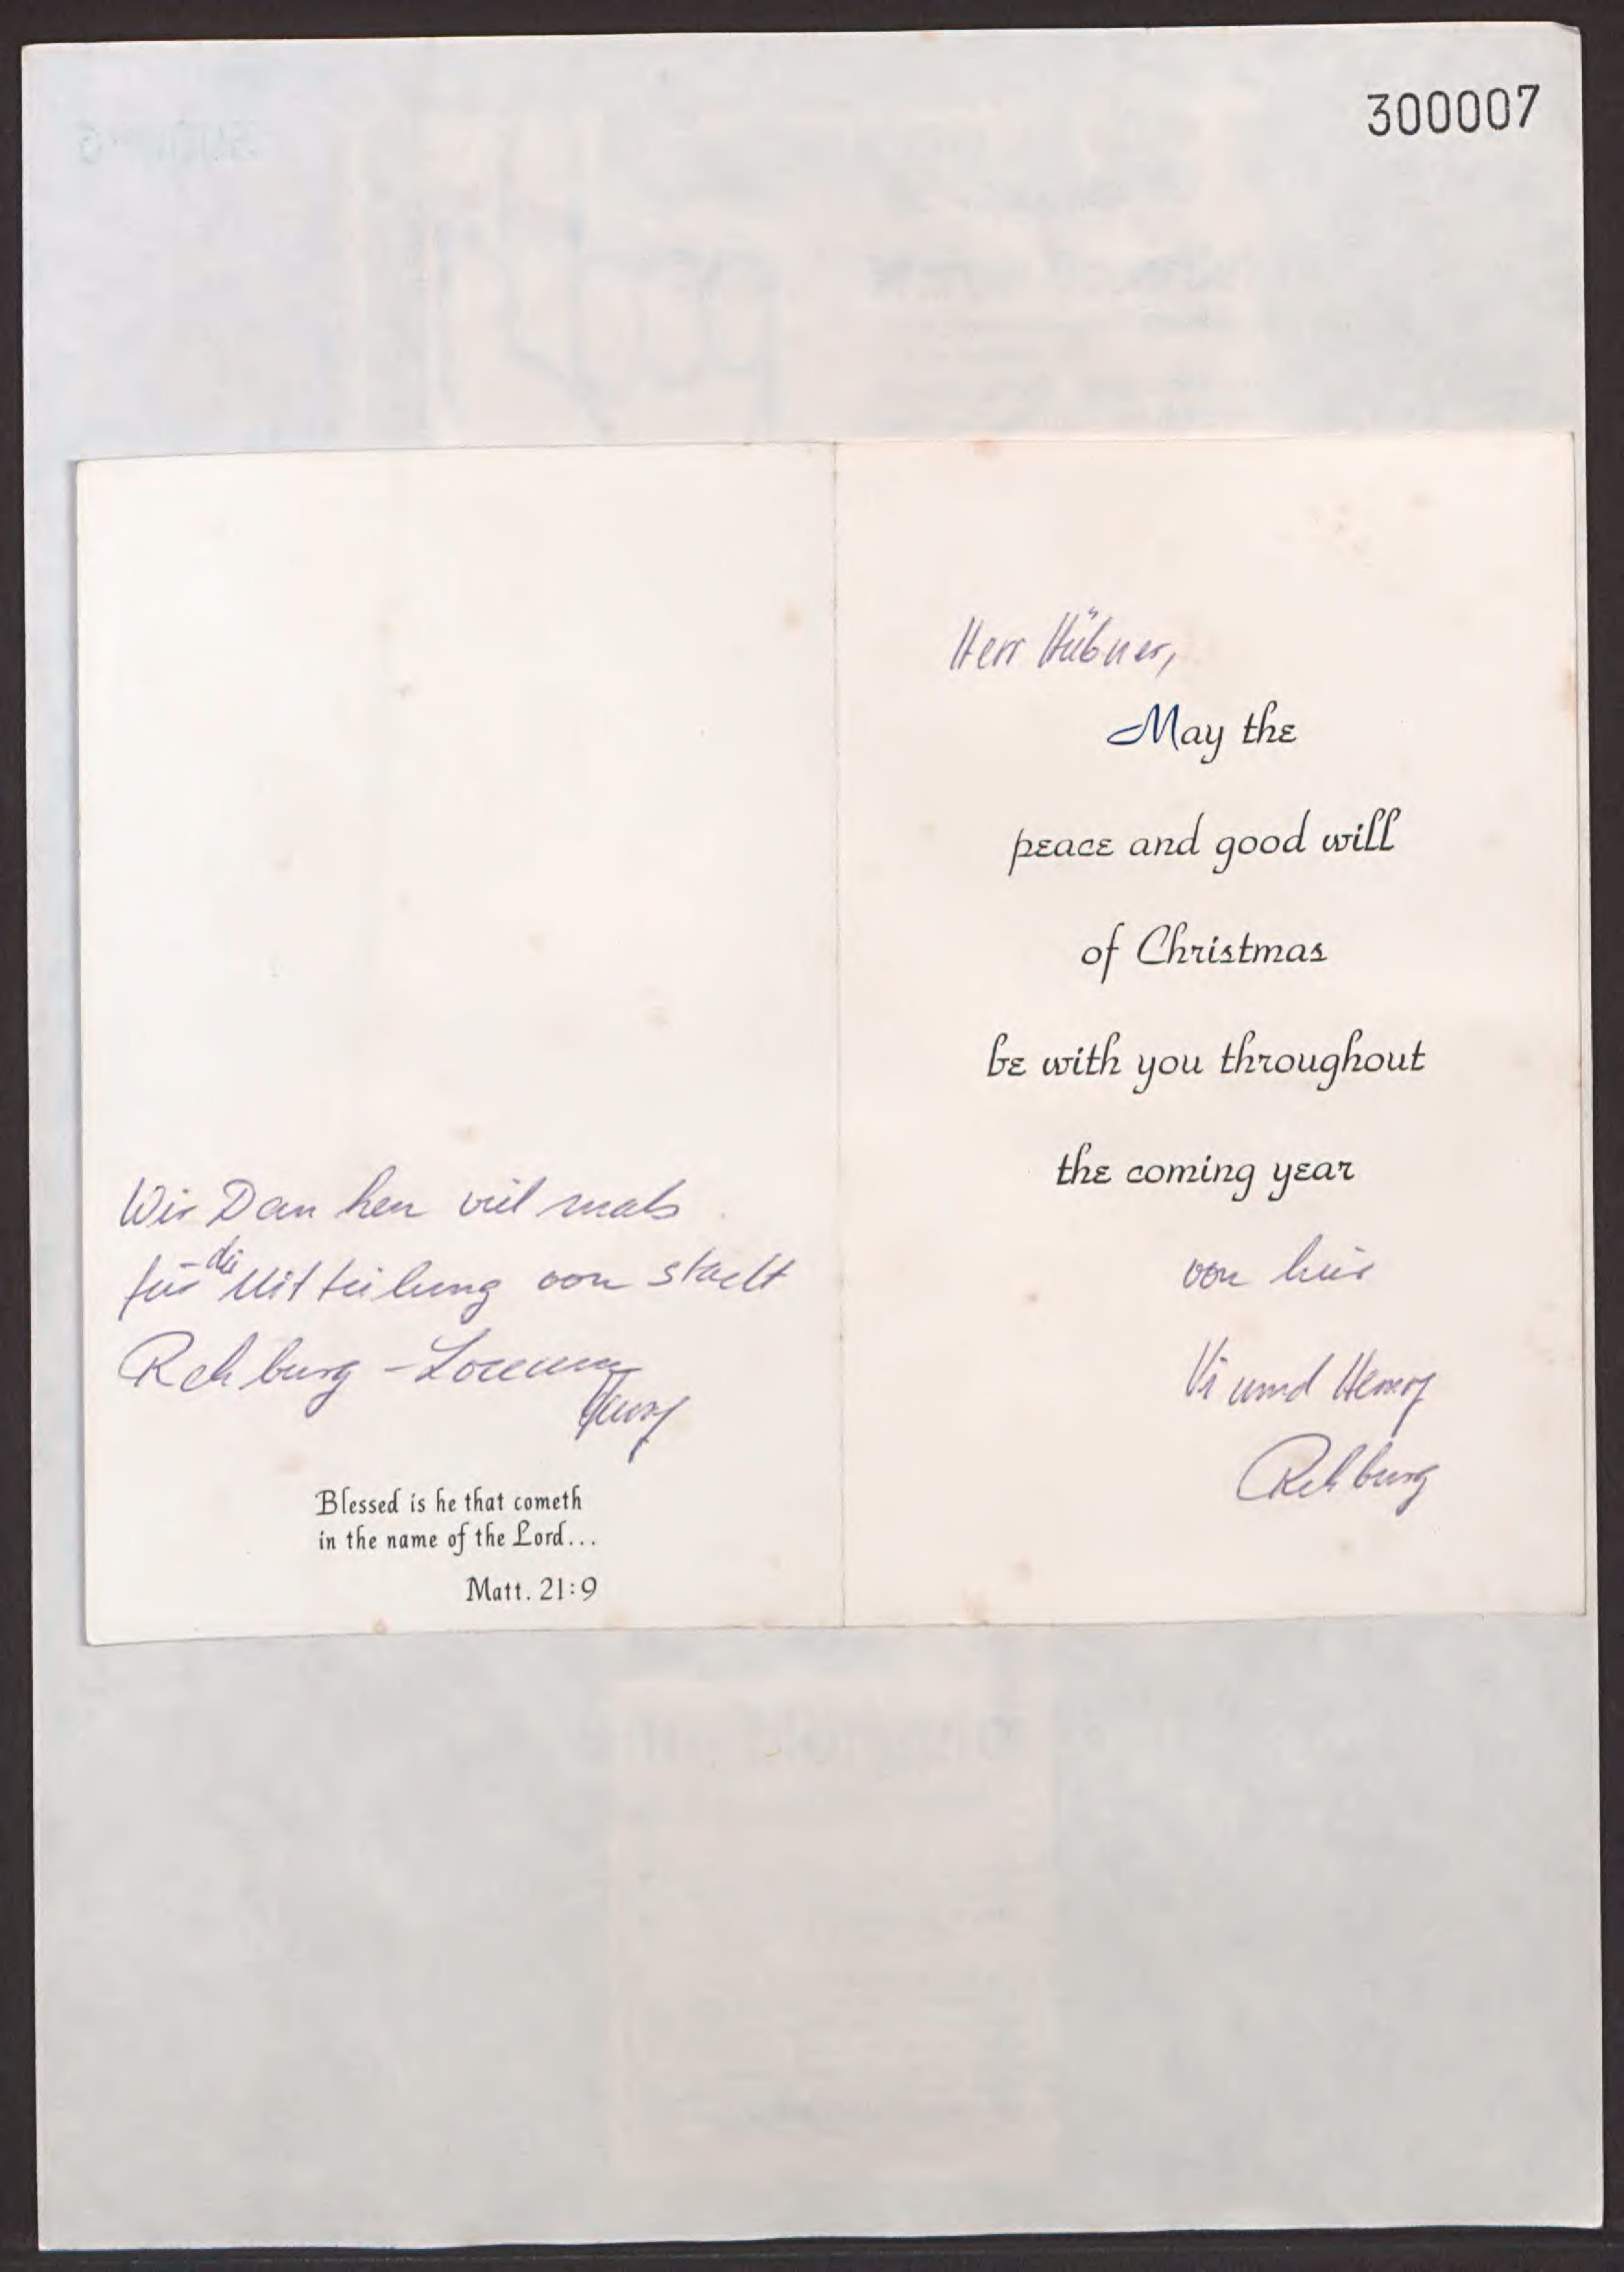 300007
Wir Danken viel mals
für die Mitteilung von stadt
Rehburg - Loccum
Henry
Blessed is he that cometh
in the name of the Lord...
Matt. 21:9
Herr Hübner,
May the
peace and good will
of Christmas
be with you throughout
the coming year
von hier
Vi und Henry
Rehburg